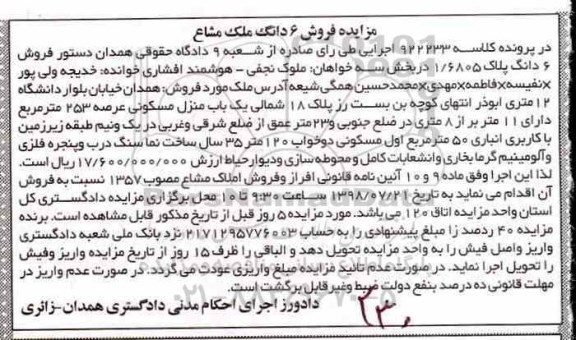 مزایده فروش ۶ دانگ ملک مشاع
در پرونده کلاسه ۹۲۲۲۳۳ اجرایی طی رای صادره از شعبه ۹ دادگاه حقوقی همدان دستور فروش
۶ دانگ پلاک ۱/۶۸۰۵ در بخش سه خواهان: ملوک نجفی - هوشمند افشاری خوانده: خدیجه ولی پور
×نفیسه×فاطمه×مهدی×محمدحسین همگی شیعه آدرس ملک مورد فروش: همدان خیابان بلوار دانشگاه
۱۲ متری ابوذر انتهای کوچه بن بست رز پلاک ۱۸ شمالی یک باب منزل مسکونی عرصه ۲۵۳ مترمربع
دارای ۱۱ متر بر از ۸ متری در ضلع جنوبی و ۲۳ متر عمق از ضلع شرقی وغربی در یک ونیم طبقه زیرزمین
با کاربری انباری ۵۰ مترمربع اول مسکونی دوخواب ۱۲۰ متر ۳۵ سال ساخت نما سنگ درب وپنجره فلزی
وآلومینیم گرما بخاری وانشعابات کامل ومحوطه سازی ودیوار حیاط ارزش ۱۷/۶۰۰/۰۰۰/۰۰۰ ریال است.
لذا این اجرا وفق ماده ۹ و ۱۰ آئین نامه قانونی افراز وفروش املاک مشاع مصوب ۱۳۵۷ نسبت به فروش
آن اقدام می نماید به تاریخ ۱۳۹۸/۰۷/۲۱ ساعت ۹:۳۰ تا ۱۰ محل برگزاری مزایده دادگستری کل
استان واحد مزایده اتاق ۱۲۰ می باشد. مورد مزایده ۵ روز قبل از تاریخ مذکور قابل مشاهده است. برنده
مزایده ۴۰ ردصد زا مبلغ پیشنهادی را به حساب ۲۱۷۱۲۹۵۷۷۶۰۰۳ نزد بانک ملی شعبه دادگستری
واریز واصل فیش را به واحد مزایده تحویل دهد و الباقی را ظرف ۱۵ روز از تاریخ مزایده واریز وفیش
را تحویل اجرا نماید. در صورت عدم تائید مزایده مبلغ واریزی عودت می گردد. در صورت عدم واریز در
مهلت قانونی ده درصد بنفع دولت ضبط وغیر قابل برگشت است.
دادورز اجرای احکام مدنی دادگستری همدان-زائری